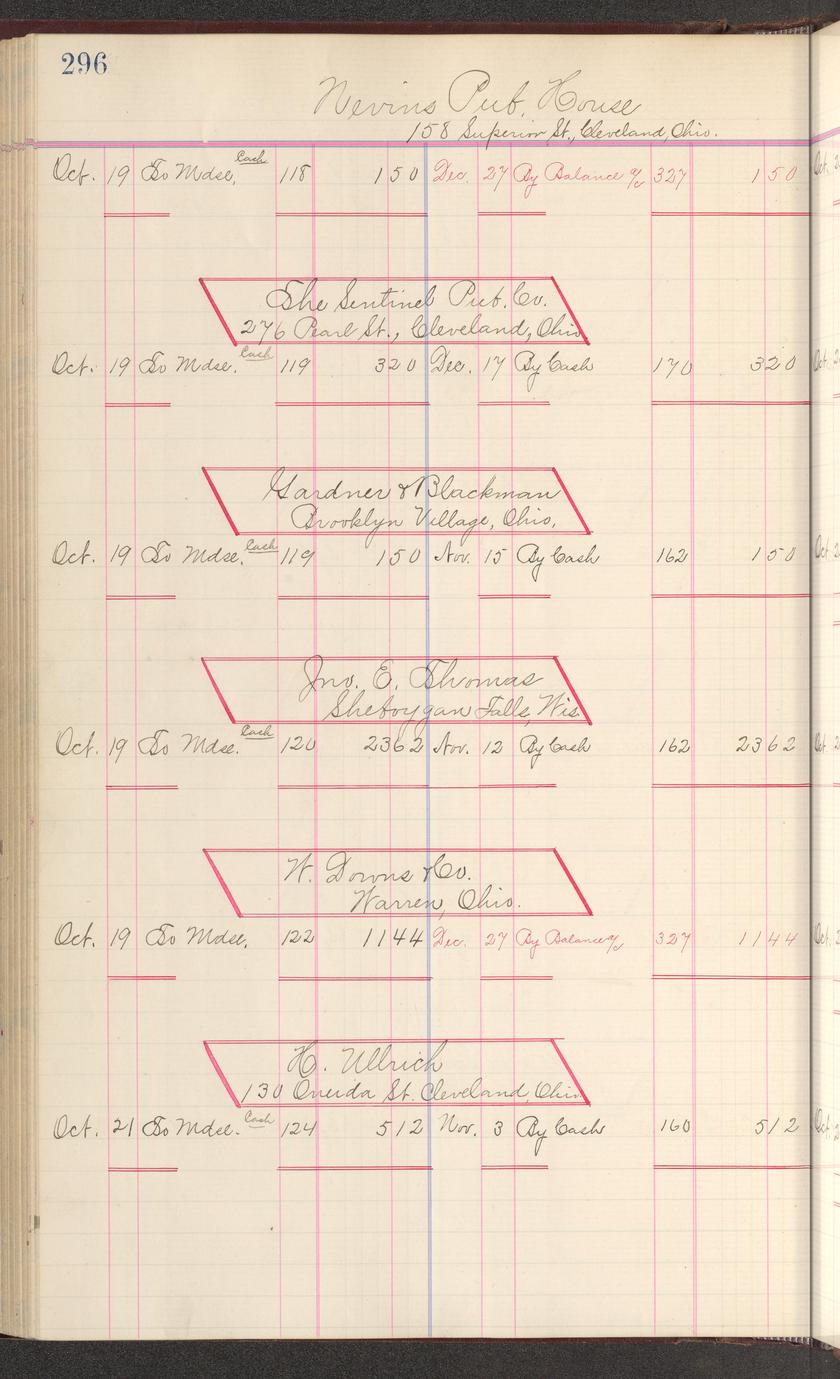 296
Nevins Pub. House
158 Superior St., Cleveland, Ohio.
Oct. 19 To Mdse. Cash 118 1 50 Dec. 27 By Balance a/c 327 1 50
The Sentinel Pub. Co.
276 Pearl St., Cleveland, Ohio
Oct. 19 To Mdse. Cash 119 3 20 Dec. 17 By Cash 170 3 20
Gardner & Blackman
Brooklyn Village, Ohio.
Oct. 19 To Mdse. Cash 119 1 50 Nov. 15 By Cash 162 1 50
Jno. E. Thomas
Sheboygan Falls, Wis.
Oct. 19 To Mdse. Cash 120 23 62 Nov. 12 By Cash 162 23 62
W. Downs & Co.
Warren, Ohio.
Oct. 19 To Mdse. 122 11 44 Dec. 27 By Balance a/c 327 11 44
H. Ullrich
130 Oneida St. Cleveland, Ohio
Oct. 21 To Mdse. Cash 124 5 12 Nov. 3 By Cash 160 5 12